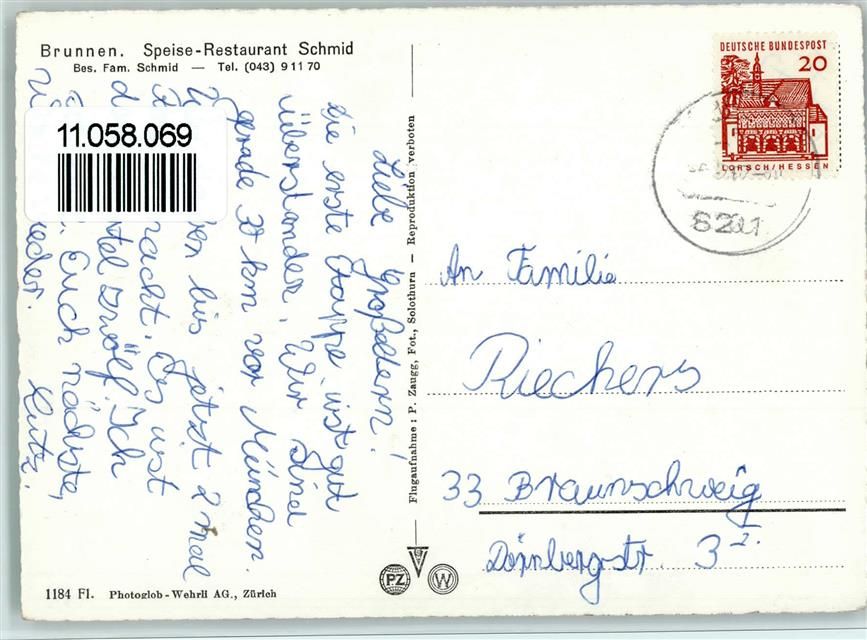 Brunnen. Speise-Restaurant Schmid
Bes. Fam. Schmid — Tel. (043) 9 11 70
11.058.069
Liebe Großeltern!
Die erste Etappe ist gut
überstanden. Wir sind
gerade 30 km vor München.
bis jetzt 2 mal
Es ist
zwölf. Ich
Euch nächste
Lutz.
Flugaufnahme: P. Zaugg, Fot., Solothurn — Reproduktion verboten
DEUTSCHE BUNDESPOST
20
LORSCH/HESSEN
8201
An Familie
Riechers
33 Braunschweig
Dörnbergstr. 3 I.
PZ
W
1184 Fl. Photoglob-Wehrli AG., Zürich